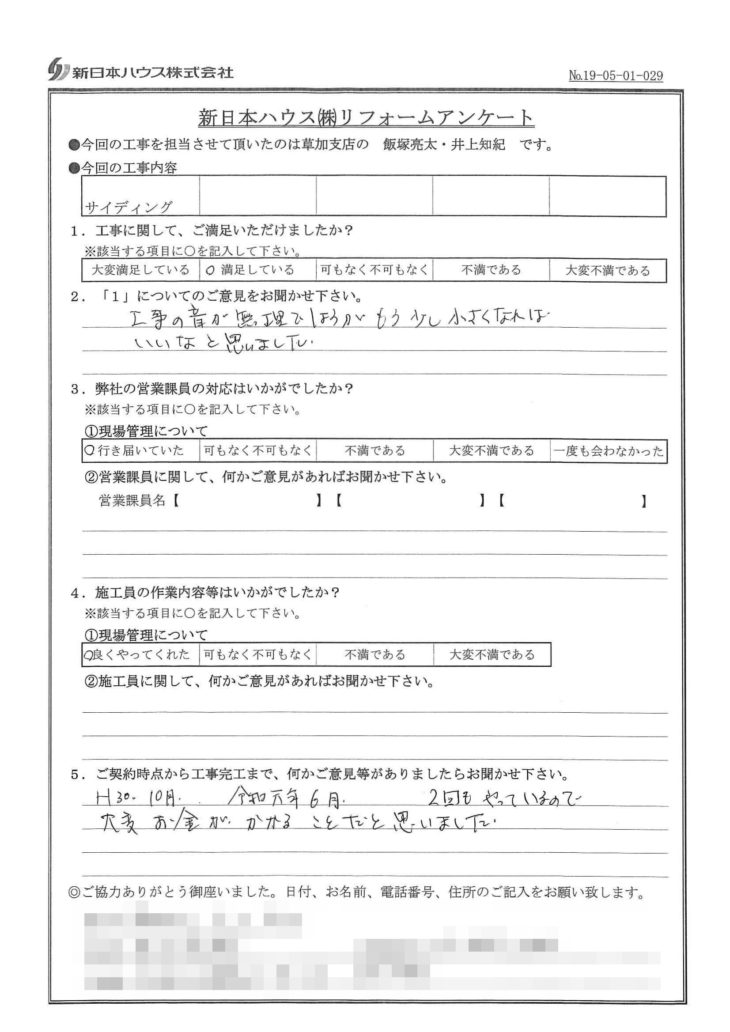 新日本ハウス株式会社
№19-05-01-029
新日本ハウス㈱リフォームアンケート
●今回の工事を担当させて頂いたのは草加支店の 飯塚亮太・井上知紀 です。
●今回の工事内容
サイディング
1．工事に関して、ご満足いただけましたか？
※該当する項目に○を記入して下さい。
大変満足している ○ 満足している 可もなく不可もなく 不満である 大変不満である
2．「1」についてのご意見をお聞かせ下さい。
工事の音が無理でしょうがもう少し小さくなれば
いいなと思いました.
3．弊社の営業課員の対応はいかがでしたか？
※該当する項目に○を記入して下さい。
①現場管理について
○行き届いていた 可もなく不可もなく 不満である 大変不満である 一度も会わなかった
②営業課員に関して、何かご意見があればお聞かせ下さい。
営業課員名【 】【 】【 】
4．施工員の作業内容等はいかがでしたか？
※該当する項目に○を記入して下さい。
①現場管理について
○良くやってくれた 可もなく不可もなく 不満である 大変不満である
②施工員に関して、何かご意見があればお聞かせ下さい。
5．ご契約時点から工事完工まで、何かご意見等がありましたらお聞かせ下さい。
H30. 10月. 令和元年6月. 2回もやっているので
大変お金がかかることだと思いました.
◎ご協力ありがとう御座いました。日付、お名前、電話番号、住所のご記入をお願い致します。